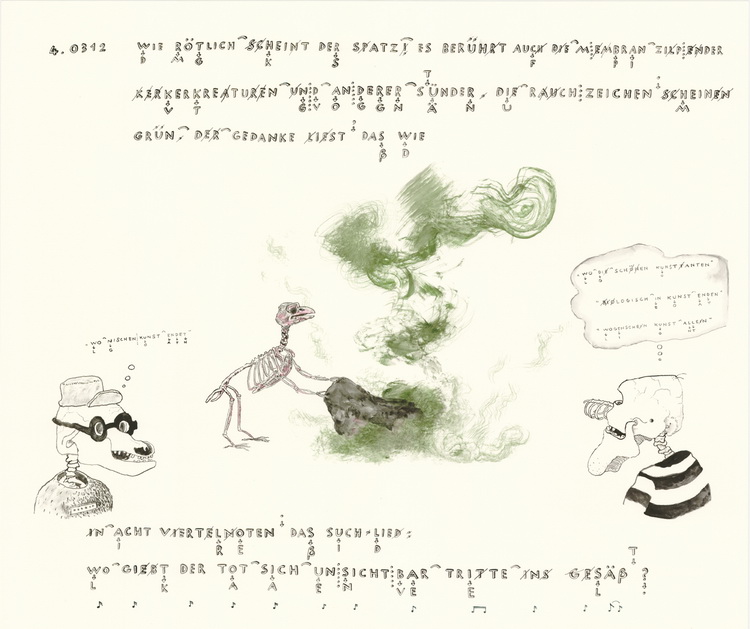 4.0312 WIE RÖTLICH SCHEINT DER SPATZ! ES BERÜHRT AUCH DIE MEMBRAN ZIRPENDER
D M G K S F P I
T
KERKERKREATUREN UND ANDERER SÜNDER. DIE RAUCHZEICHEN SCHEINEN
V T G V O G G N Ä N U M
GRÜN. DER GEDANKE LIEST DAS WIE
ß D
"WO DIE SCHÖNEN KUNST KANTEN"
LOGISCH IN KUNST ENDEN"
KUNST ALLEIN"
KUNST ENDET"
IN ACHT VIERTELNOTEN DAS SUCH-LIED:
I R E ß I D
T
WO GIEBT DER TOT SICH UNSICHTBAR TRITTE INS GESÄß?
L K A A E N V E E L